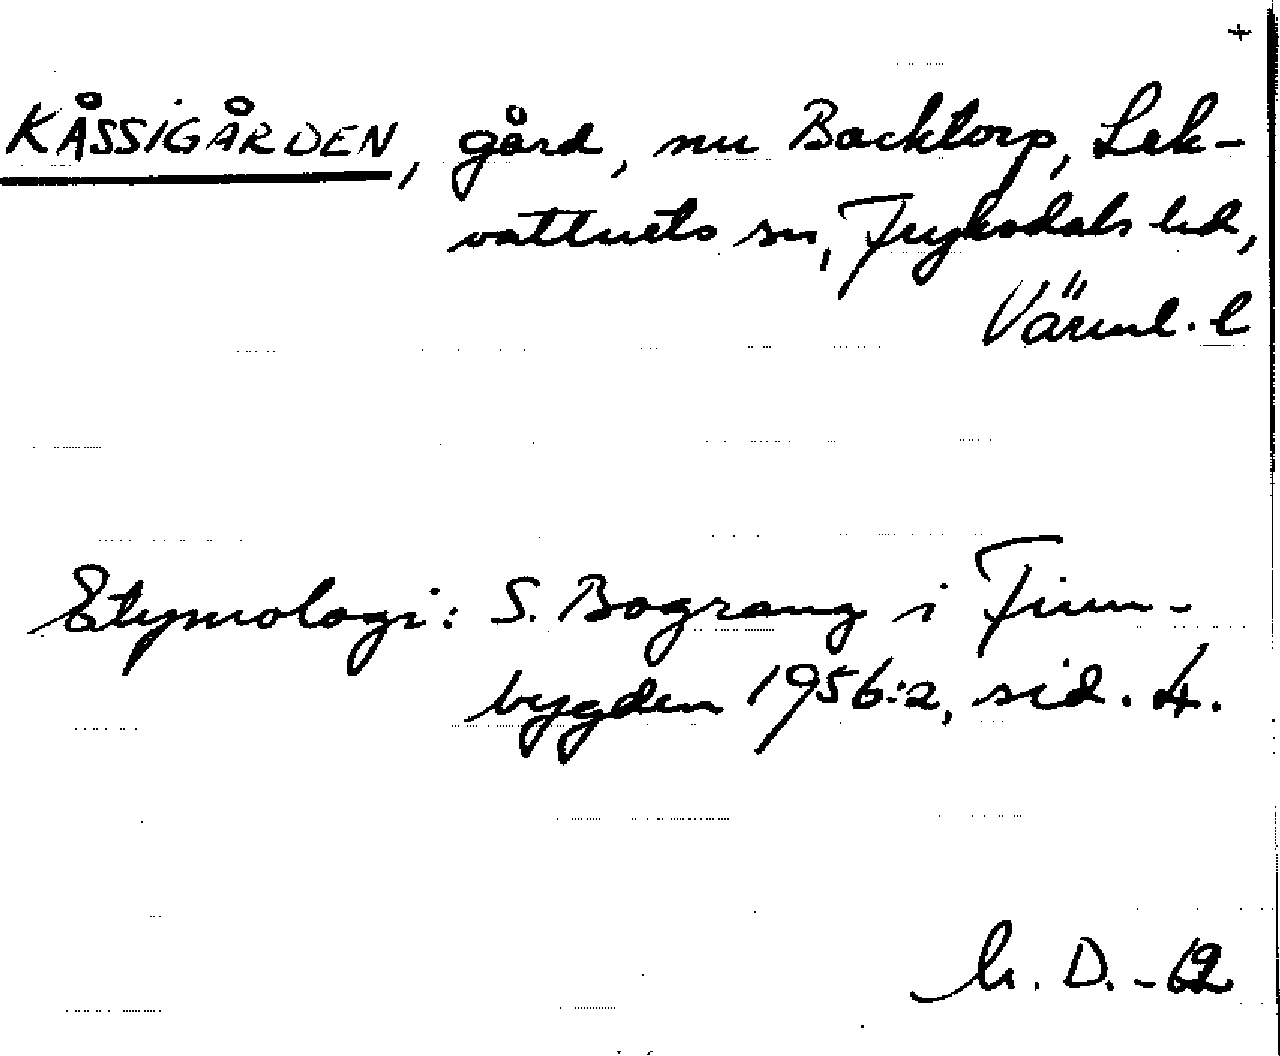 +
KÅSSIGÅRDEN, gård, nu Backtorp, Lek-
vattnets sn, Fryksdals hd,
Värml. l
Etymologi: S. Bograng i Finn-
bygden 1956:2, sid. 4.
D. -62